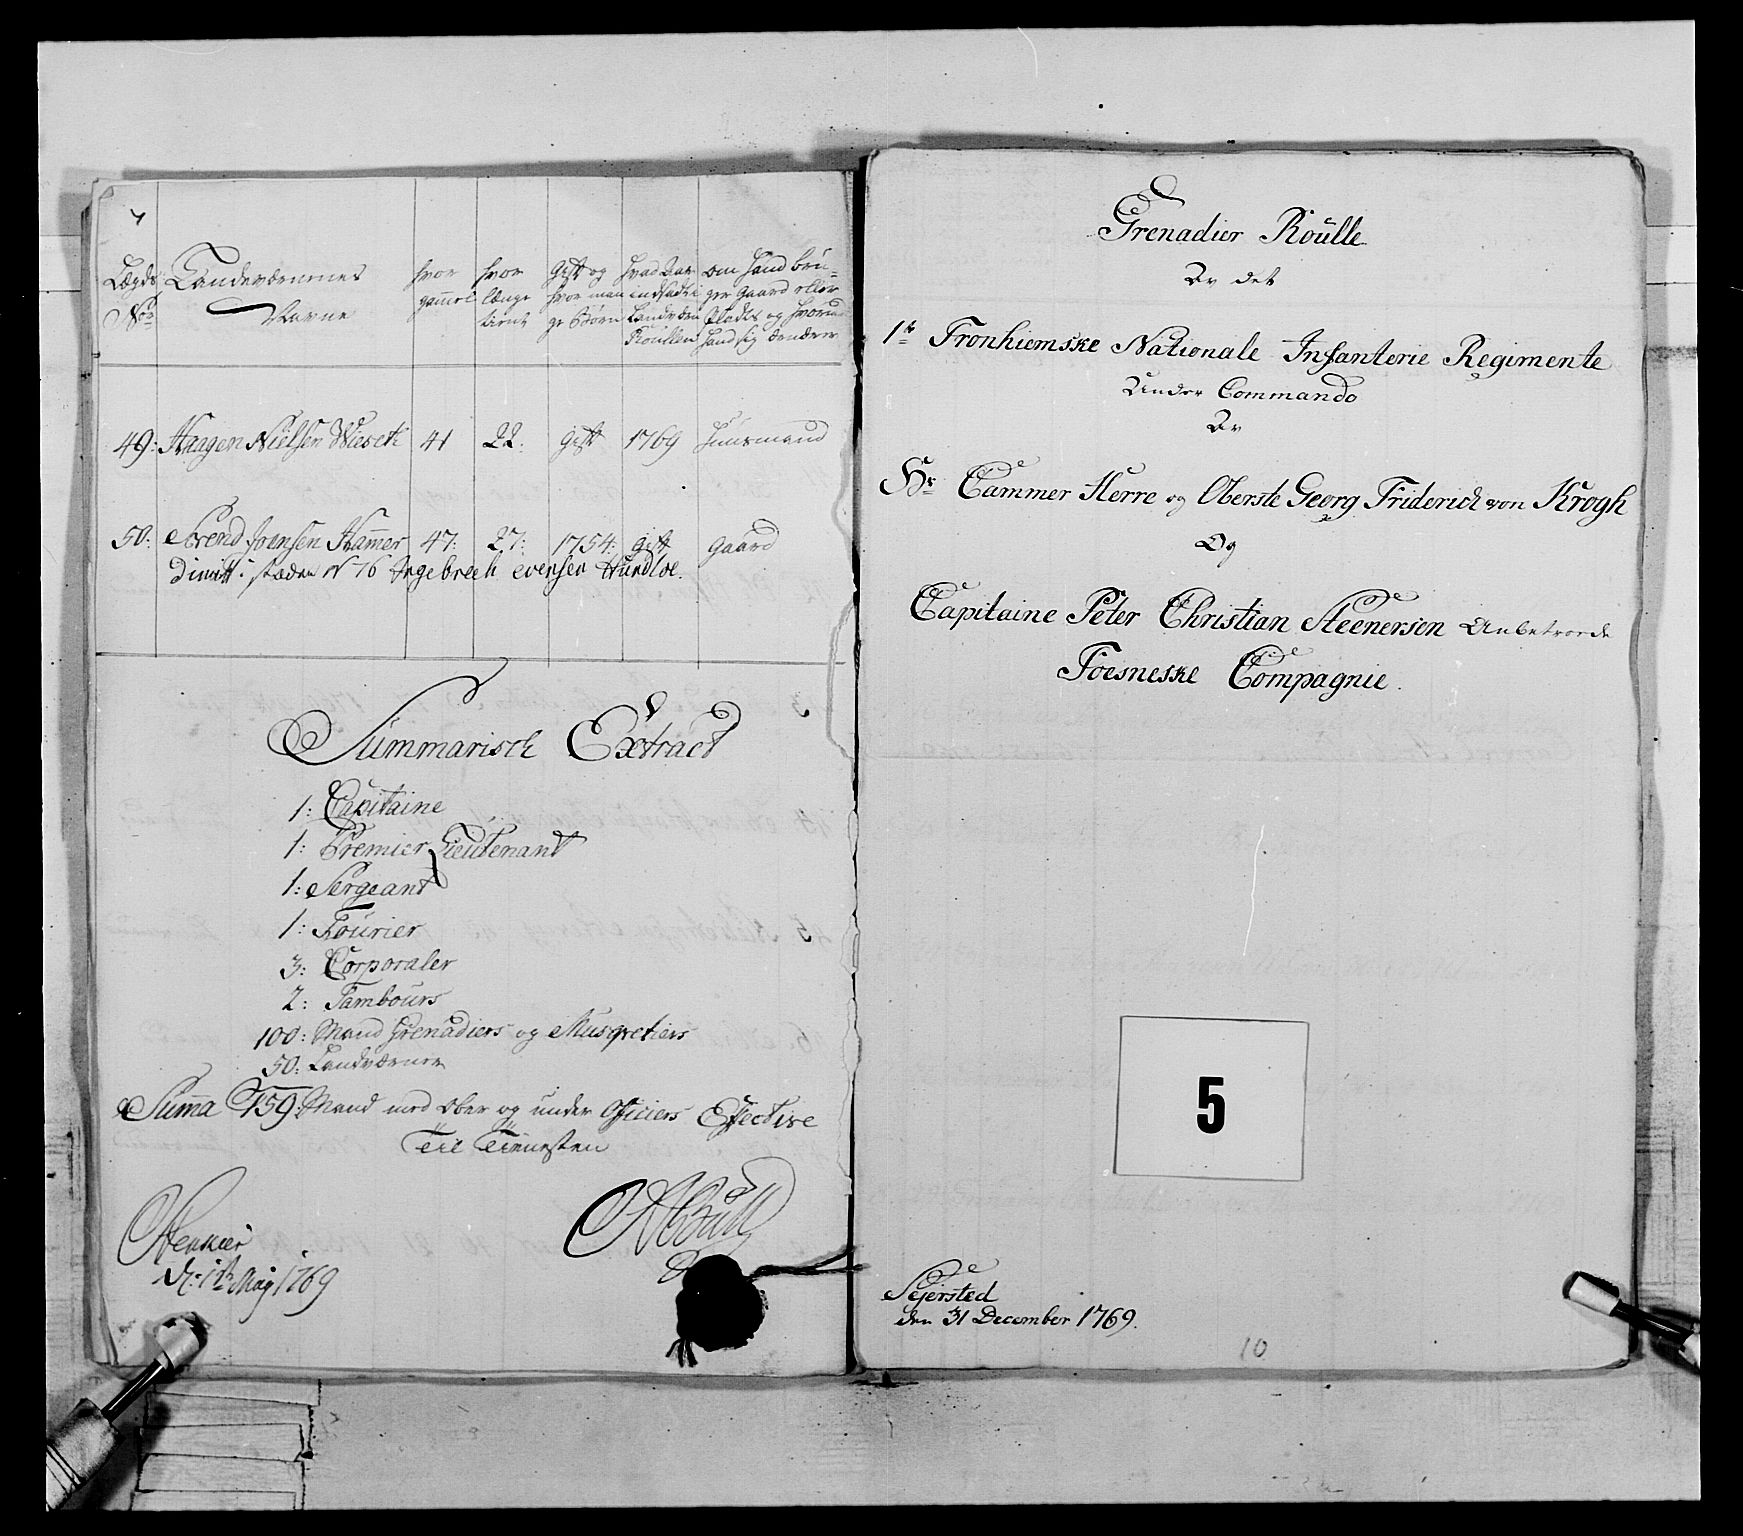 Lægds Nor
Landeværnernes Navne
hvor gammel
hvor længe tient
Gift og hvor mange Børn
hvad Aar indsadt i Landværn Roullen
om hand bruger Gaard eller Plads og hvorved hand sig ernærer
49: Haagen Nielsen Wieseth 41 22: Gift 1769 Huusmand
50: Arend Joensen Hammer 47: 27: 1754: gift Gaard
Dimitt: i stæden N 76 Ingebrech evensen
Summarisch Extract
1: Capitaine
1: Premier Lieutenant
1: Sergeant
1: Fourier
3: Corporaler
2: Tambours
100: Mand Grenadiers og Musqvetiers
50: Landværner
Suma 159: Mand med Ober og under Officiers Effective
Til Tienesten
d: 1te Maij 1769
Grenadier Roulle
Av det
1te Tronhiemske Nationale Infanterie Regimente
Under Commando
Av
Hr Cammer Herre og Oberste Georg Friderich von Krogh
Og
Capitaine Peter Christian Steenersen Anbetroede
Foesneske Compagnie.
5
Sejersted
den 31 December 1769.
10